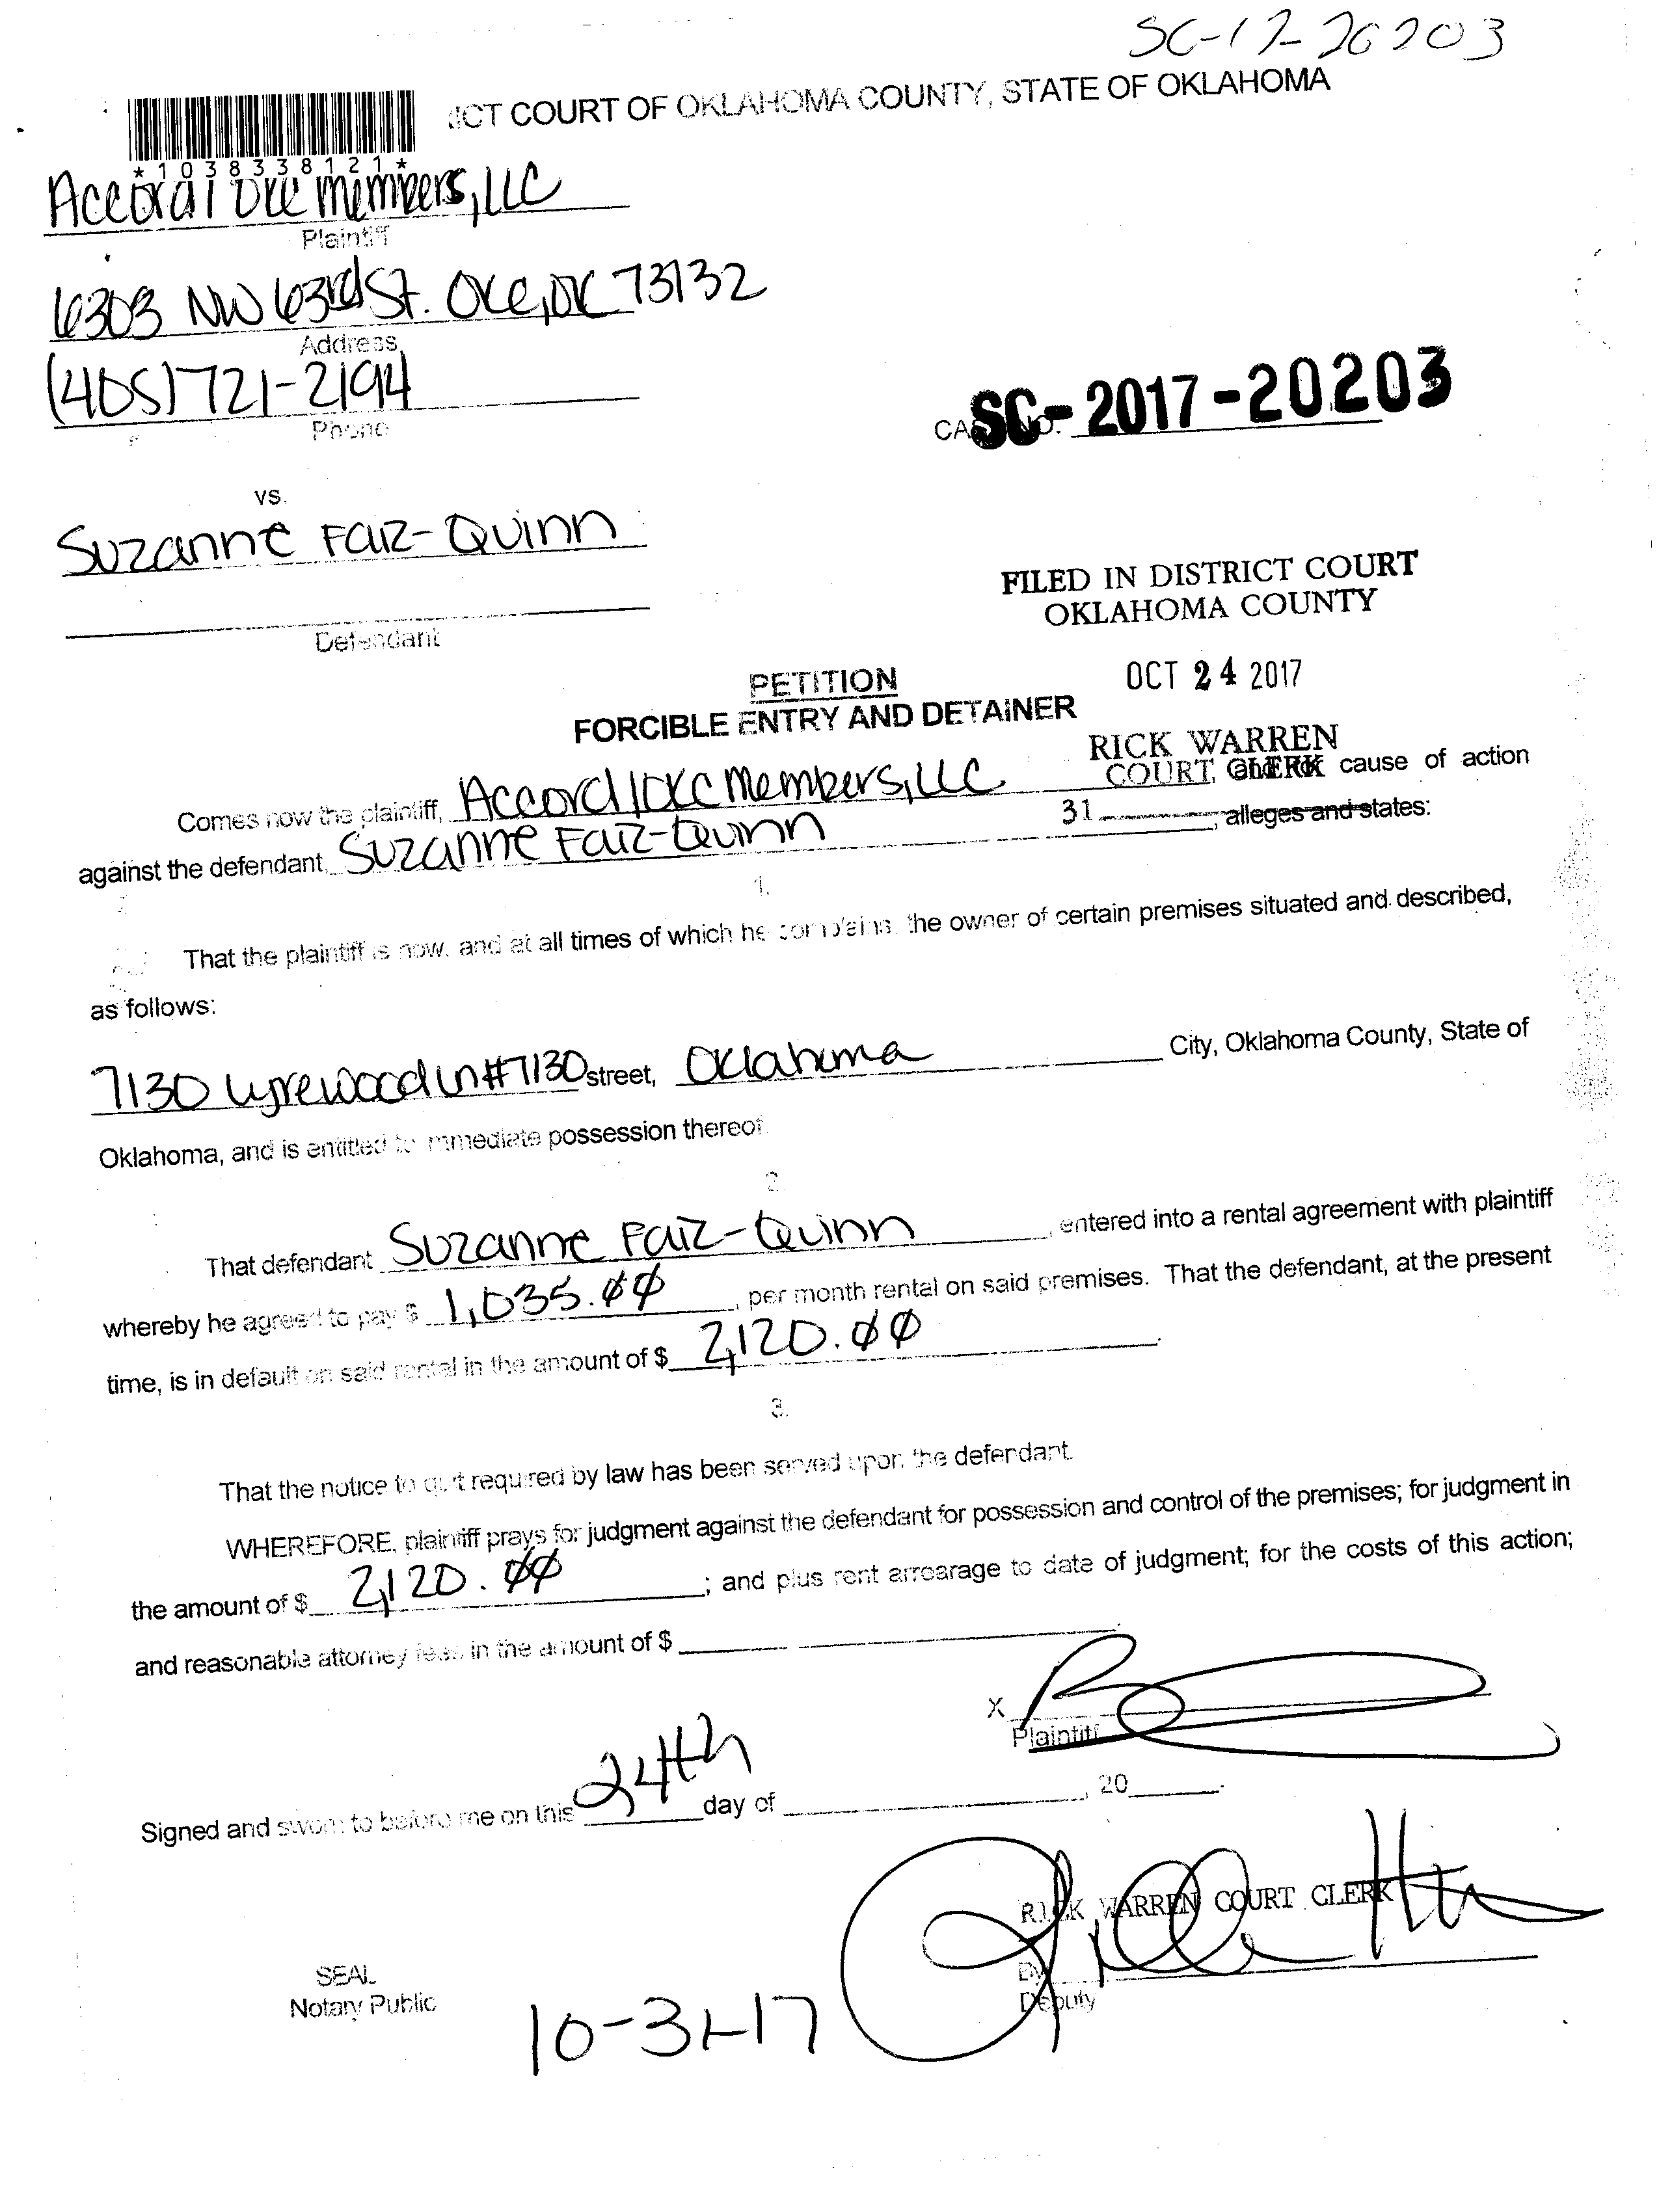 SC-17-20203
ICT COURT OF OKLAHOMA COUNTY, STATE OF OKLAHOMA
*1038338121*
Accord/OKC Members, LLC
Plaintiff
6303 NW 63rd St. OKC, OK 73132
Address
(405)721-2194
Phone
CASE NO. SC-2017-20203
vs.
Suzanne Faiz-Quinn
Defendant
FILED IN DISTRICT COURT
OKLAHOMA COUNTY
OCT 24 2017
RICK WARREN
COURT CLERK
31
PETITION
FORCIBLE ENTRY AND DETAINER
Comes now the plaintiff, Accord/OKC Members, LLC, and for cause of action
against the defendant, Suzanne Faiz-Quinn, alleges and states:
1.
That the plaintiff is now, and at all times of which he complains, the owner of certain premises situated and described,
as follows:
7130 Lyrewood Ln #7130 street, Oklahoma City, Oklahoma County, State of
Oklahoma, and is entitled to immediate possession thereof.
2.
That defendant Suzanne Faiz-Quinn, entered into a rental agreement with plaintiff
whereby he agreed to pay $ 1,035.00, per month rental on said premises. That the defendant, at the present
time, is in default on said rental in the amount of $ 2,120.00.
3.
That the notice to quit required by law has been served upon the defendant.
WHEREFORE, plaintiff prays for judgment against the defendant for possession and control of the premises; for judgment in
the amount of $ 2,120.00; and plus rent arrearage to date of judgment; for the costs of this action;
and reasonable attorney fees in the amount of $
X
Plaintiff
Signed and sworn to before me on this 24th day of , 20 .
RICK WARREN COURT CLERK
By
Deputy
SEAL
Notary Public
10-31-17